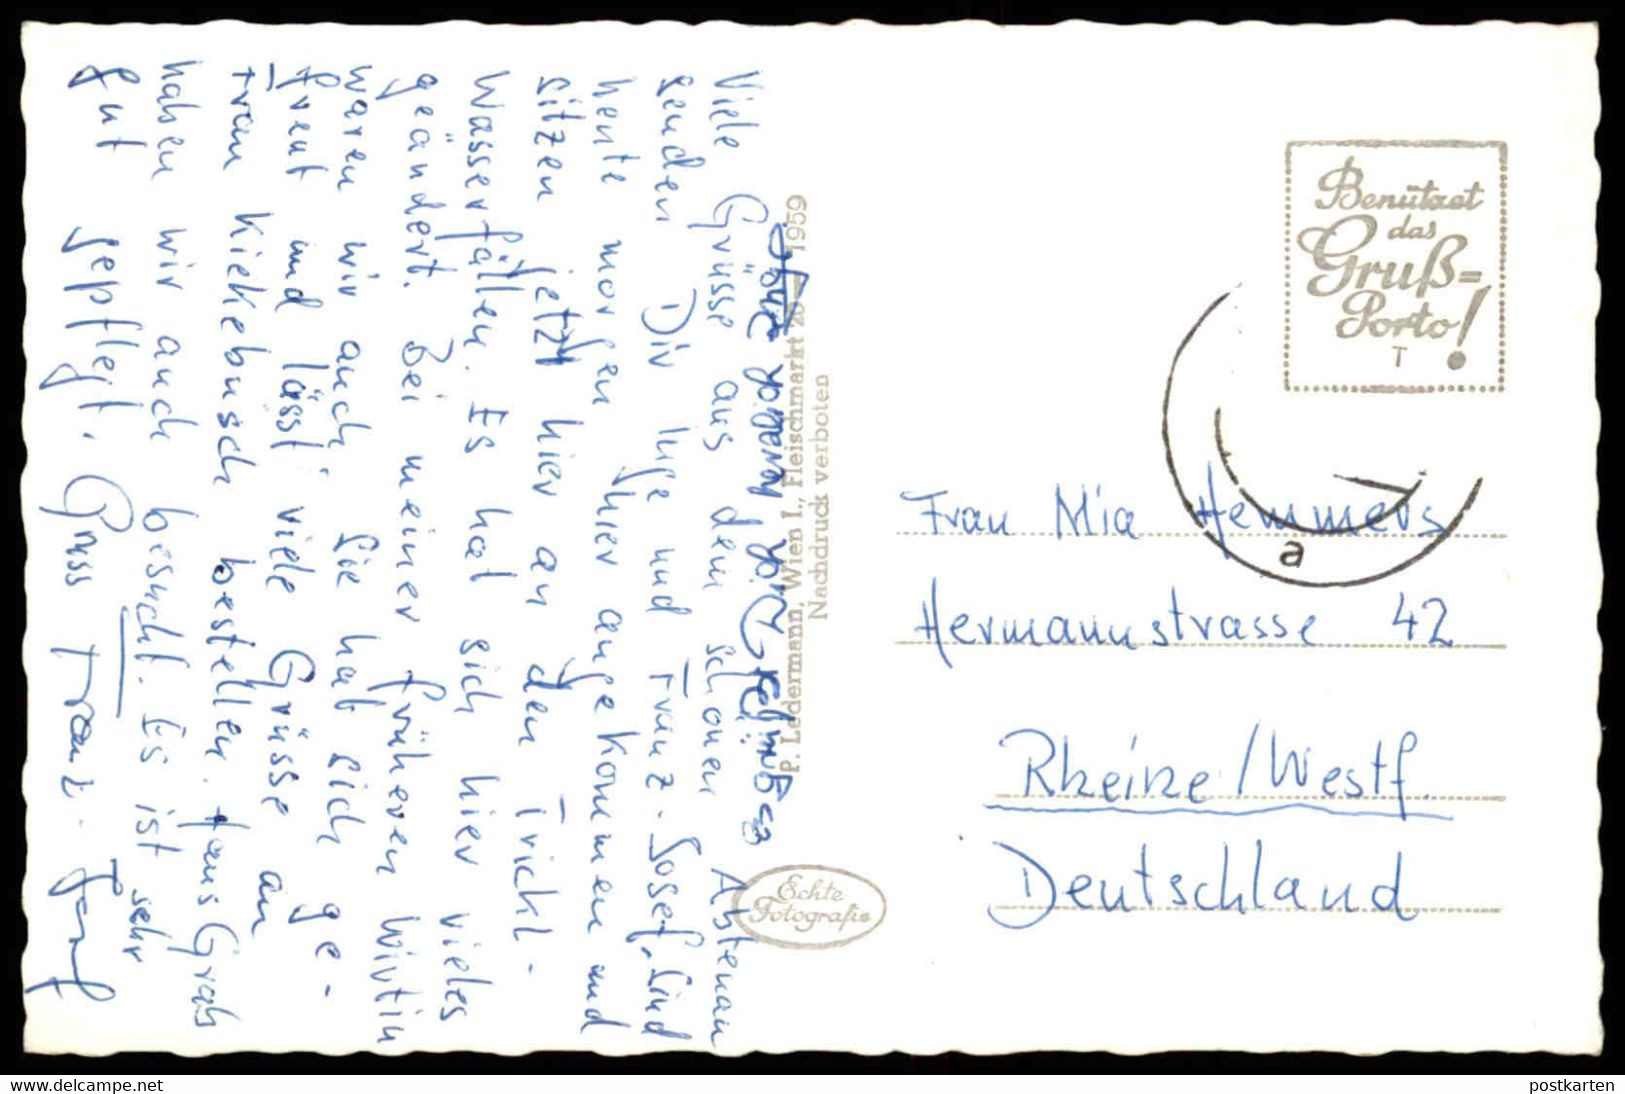 Viele Grüsse aus dem schönen Abtenau
senden Dir Inge und Franz-Josef, sind
heute morgen hier angekommen und
sitzen jetzt hier an den Trickl-
Wasserfällen. Es hat sich hier vieles
geändert. Bei meiner früheren Wirtin
waren wir auch. Sie hat sich ge-
freut und lässt viele Grüsse an
Frau Kiekebusch bestellen. Hans Grab
haben wir auch besucht. Es ist sehr
gut gepflegt. Gruss Franz-Josef
P. Ledermann, Wien I., Fleischmarkt 20 — 1959
Nachdruck verboten
Echte
Fotografie
Benützet
das
Gruß=
Porto!
T
a
Frau Mia Hemmers
Hermannstrasse 42
Rheine/Westf.
Deutschland
www.delcampe.net
postkarten